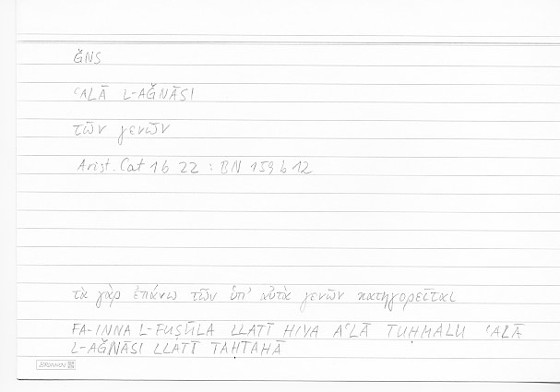 ǦNS
ʿALĀ L-AǦNĀSI
τῶν γενῶν
Arist. Cat 1 b 22 : BN 159 b 12
τὰ γὰρ ἐπάνω τῶν ὑπ' αὐτὰ γενῶν κατηγορεῖται
FA-INNA L-FUṢŪLA LLATĪ HIYA AʿLĀ TUḤMALU ʿALĀ
L-AǦNĀSI LLATĪ TAḤTAHĀ